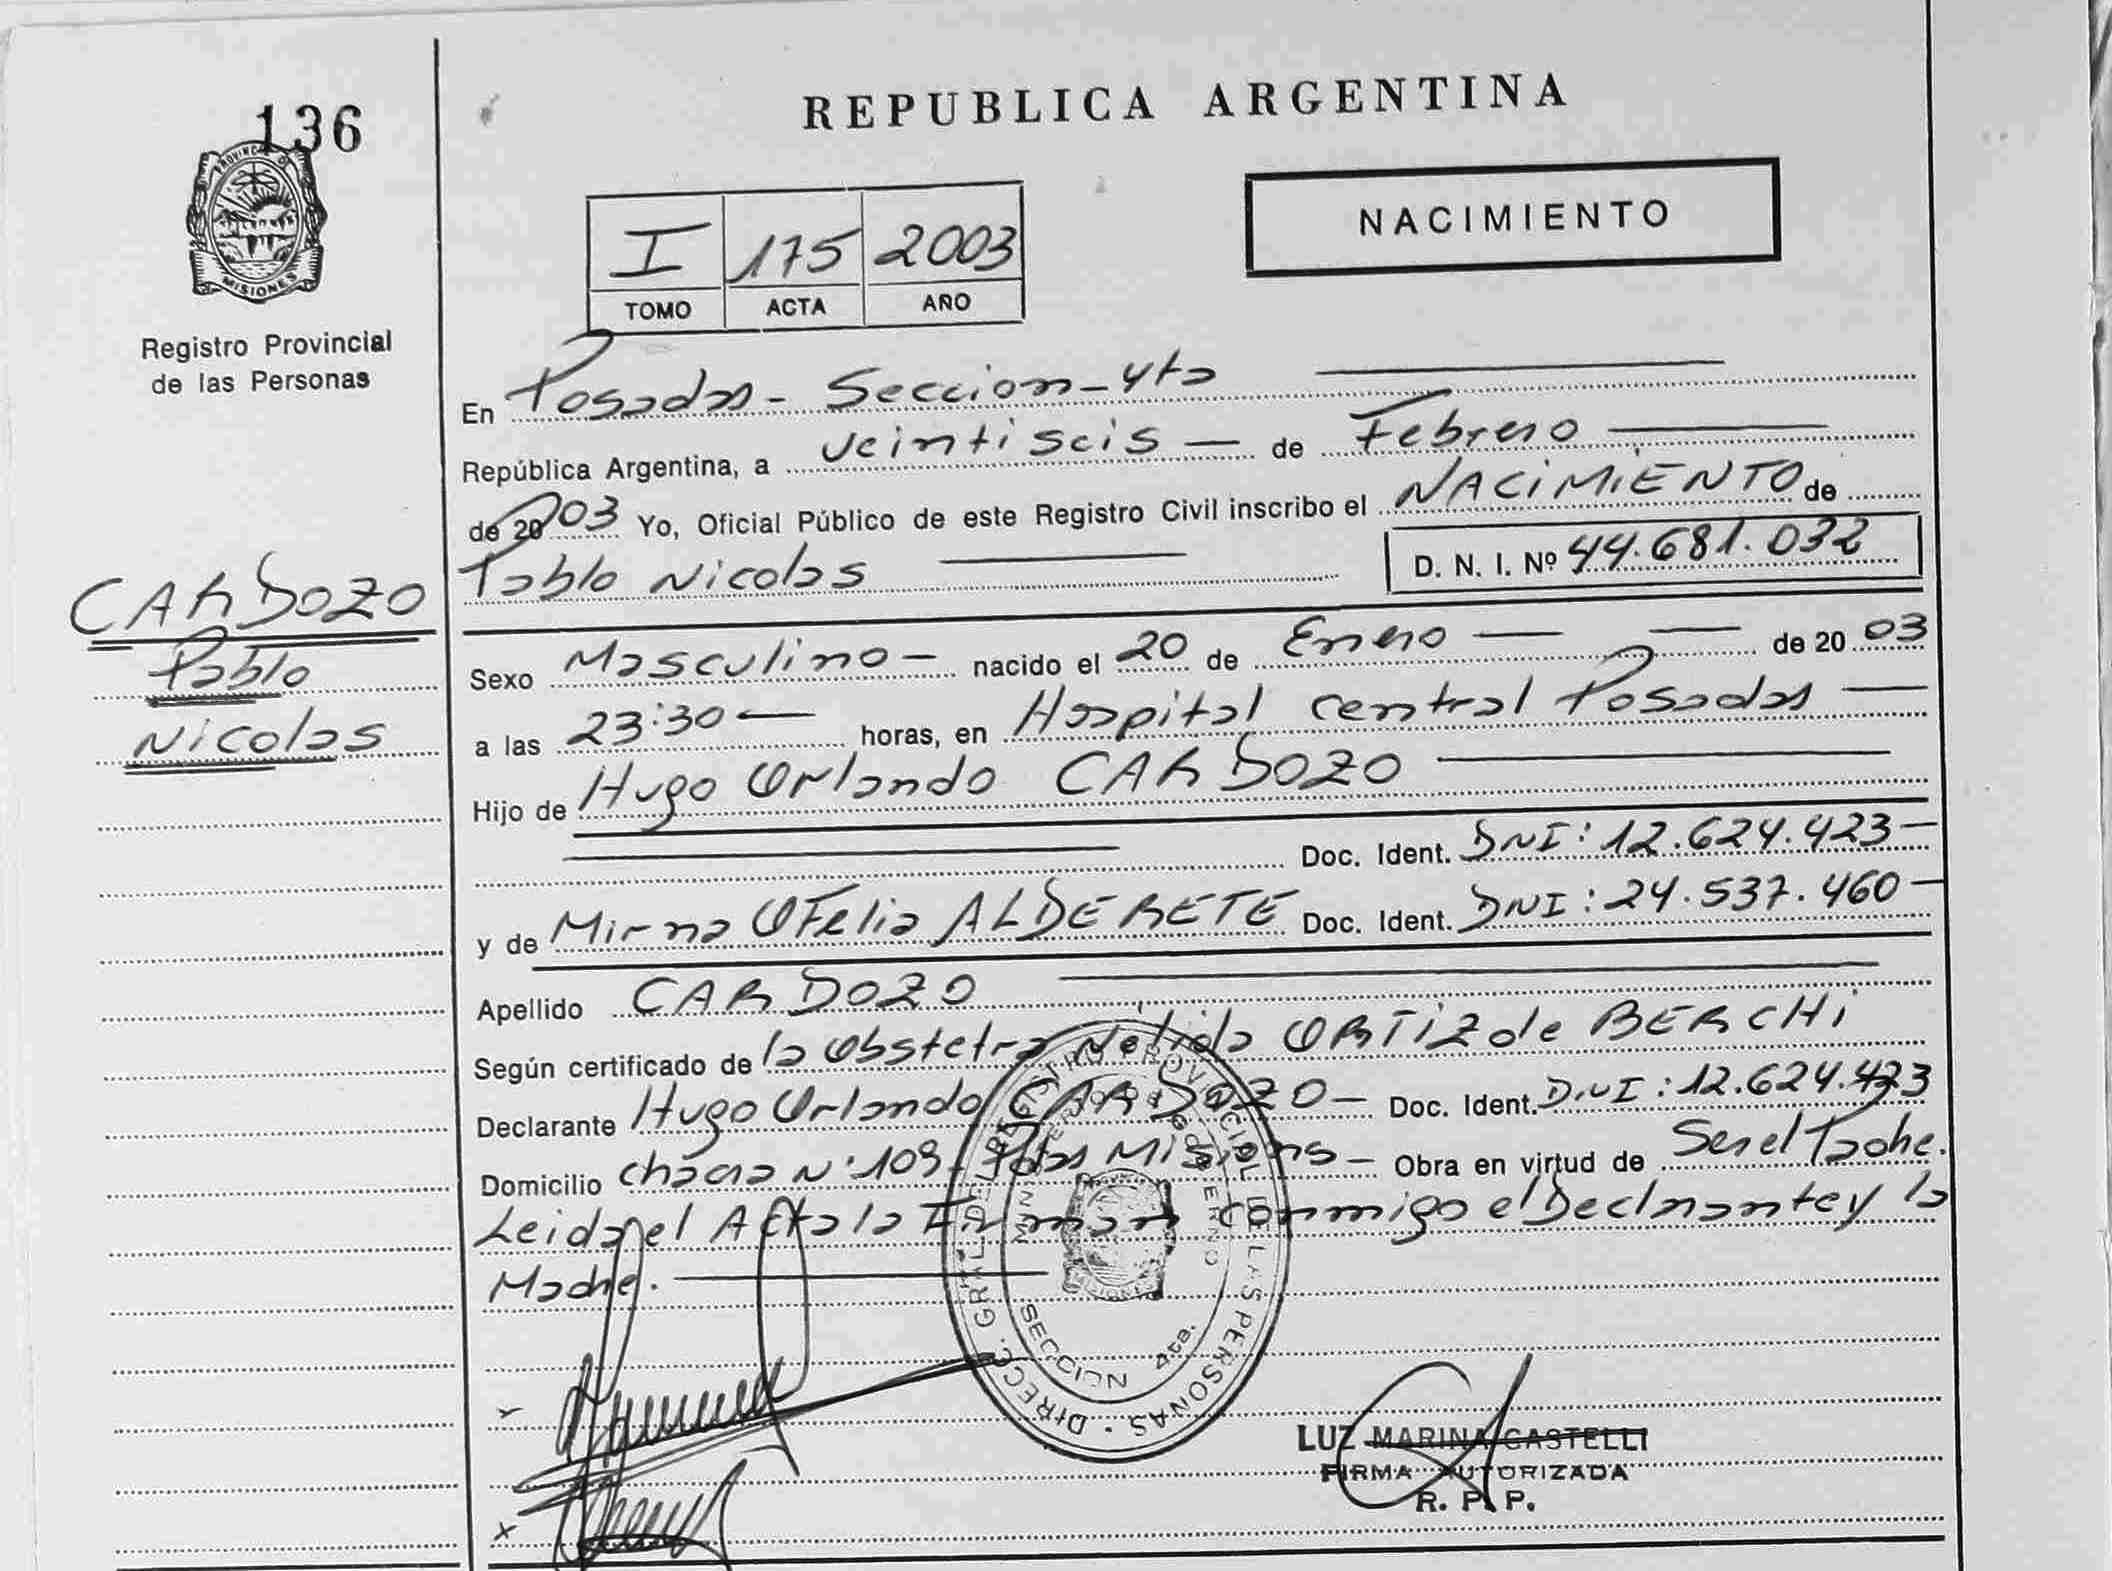 136
PROVINCIA DE
MISIONES
Registro Provincial
de las Personas
CARDOZO
Pablo
Nicolas
REPUBLICA ARGENTINA
NACIMIENTO
I 175 2003
TOMO ACTA AÑO
En Posadas - Seccion - 4ta
República Argentina, a veintiseis — de Febrero
de 2003 Yo, Oficial Público de este Registro Civil inscribo el NACIMIENTO de
Pablo Nicolas D. N. I. Nº 44.681.032
Sexo Masculino — nacido el 20 de Enero — — de 20 03
a las 23:30 — horas, en Hospital central Posadas —
Hijo de Hugo Orlando CARDOZO
Doc. Ident. DNI: 12.624.423 —
y de Mirna OFelia ALDERETE Doc. Ident. DNI: 24.537.460 —
Apellido CARDOZO
Según certificado de la Obstetra Nélida ORTIZ de BERCHI
Declarante Hugo Orlando CARDOZO — Doc. Ident. D.N.I: 12.624.423
Domicilio chacra Nº 109 - Pdas Misiones — Obra en virtud de Ser el Padre.
Leida el Acta la Firman conmigo el Declarante y la
Madre.
DIREC. GRAL. DEL REGISTRO PROVINCIAL DE LAS PERSONAS
SECCION 4ta.
LUZ MARINA CASTELLI
FIRMA AUTORIZADA
R. P. P.